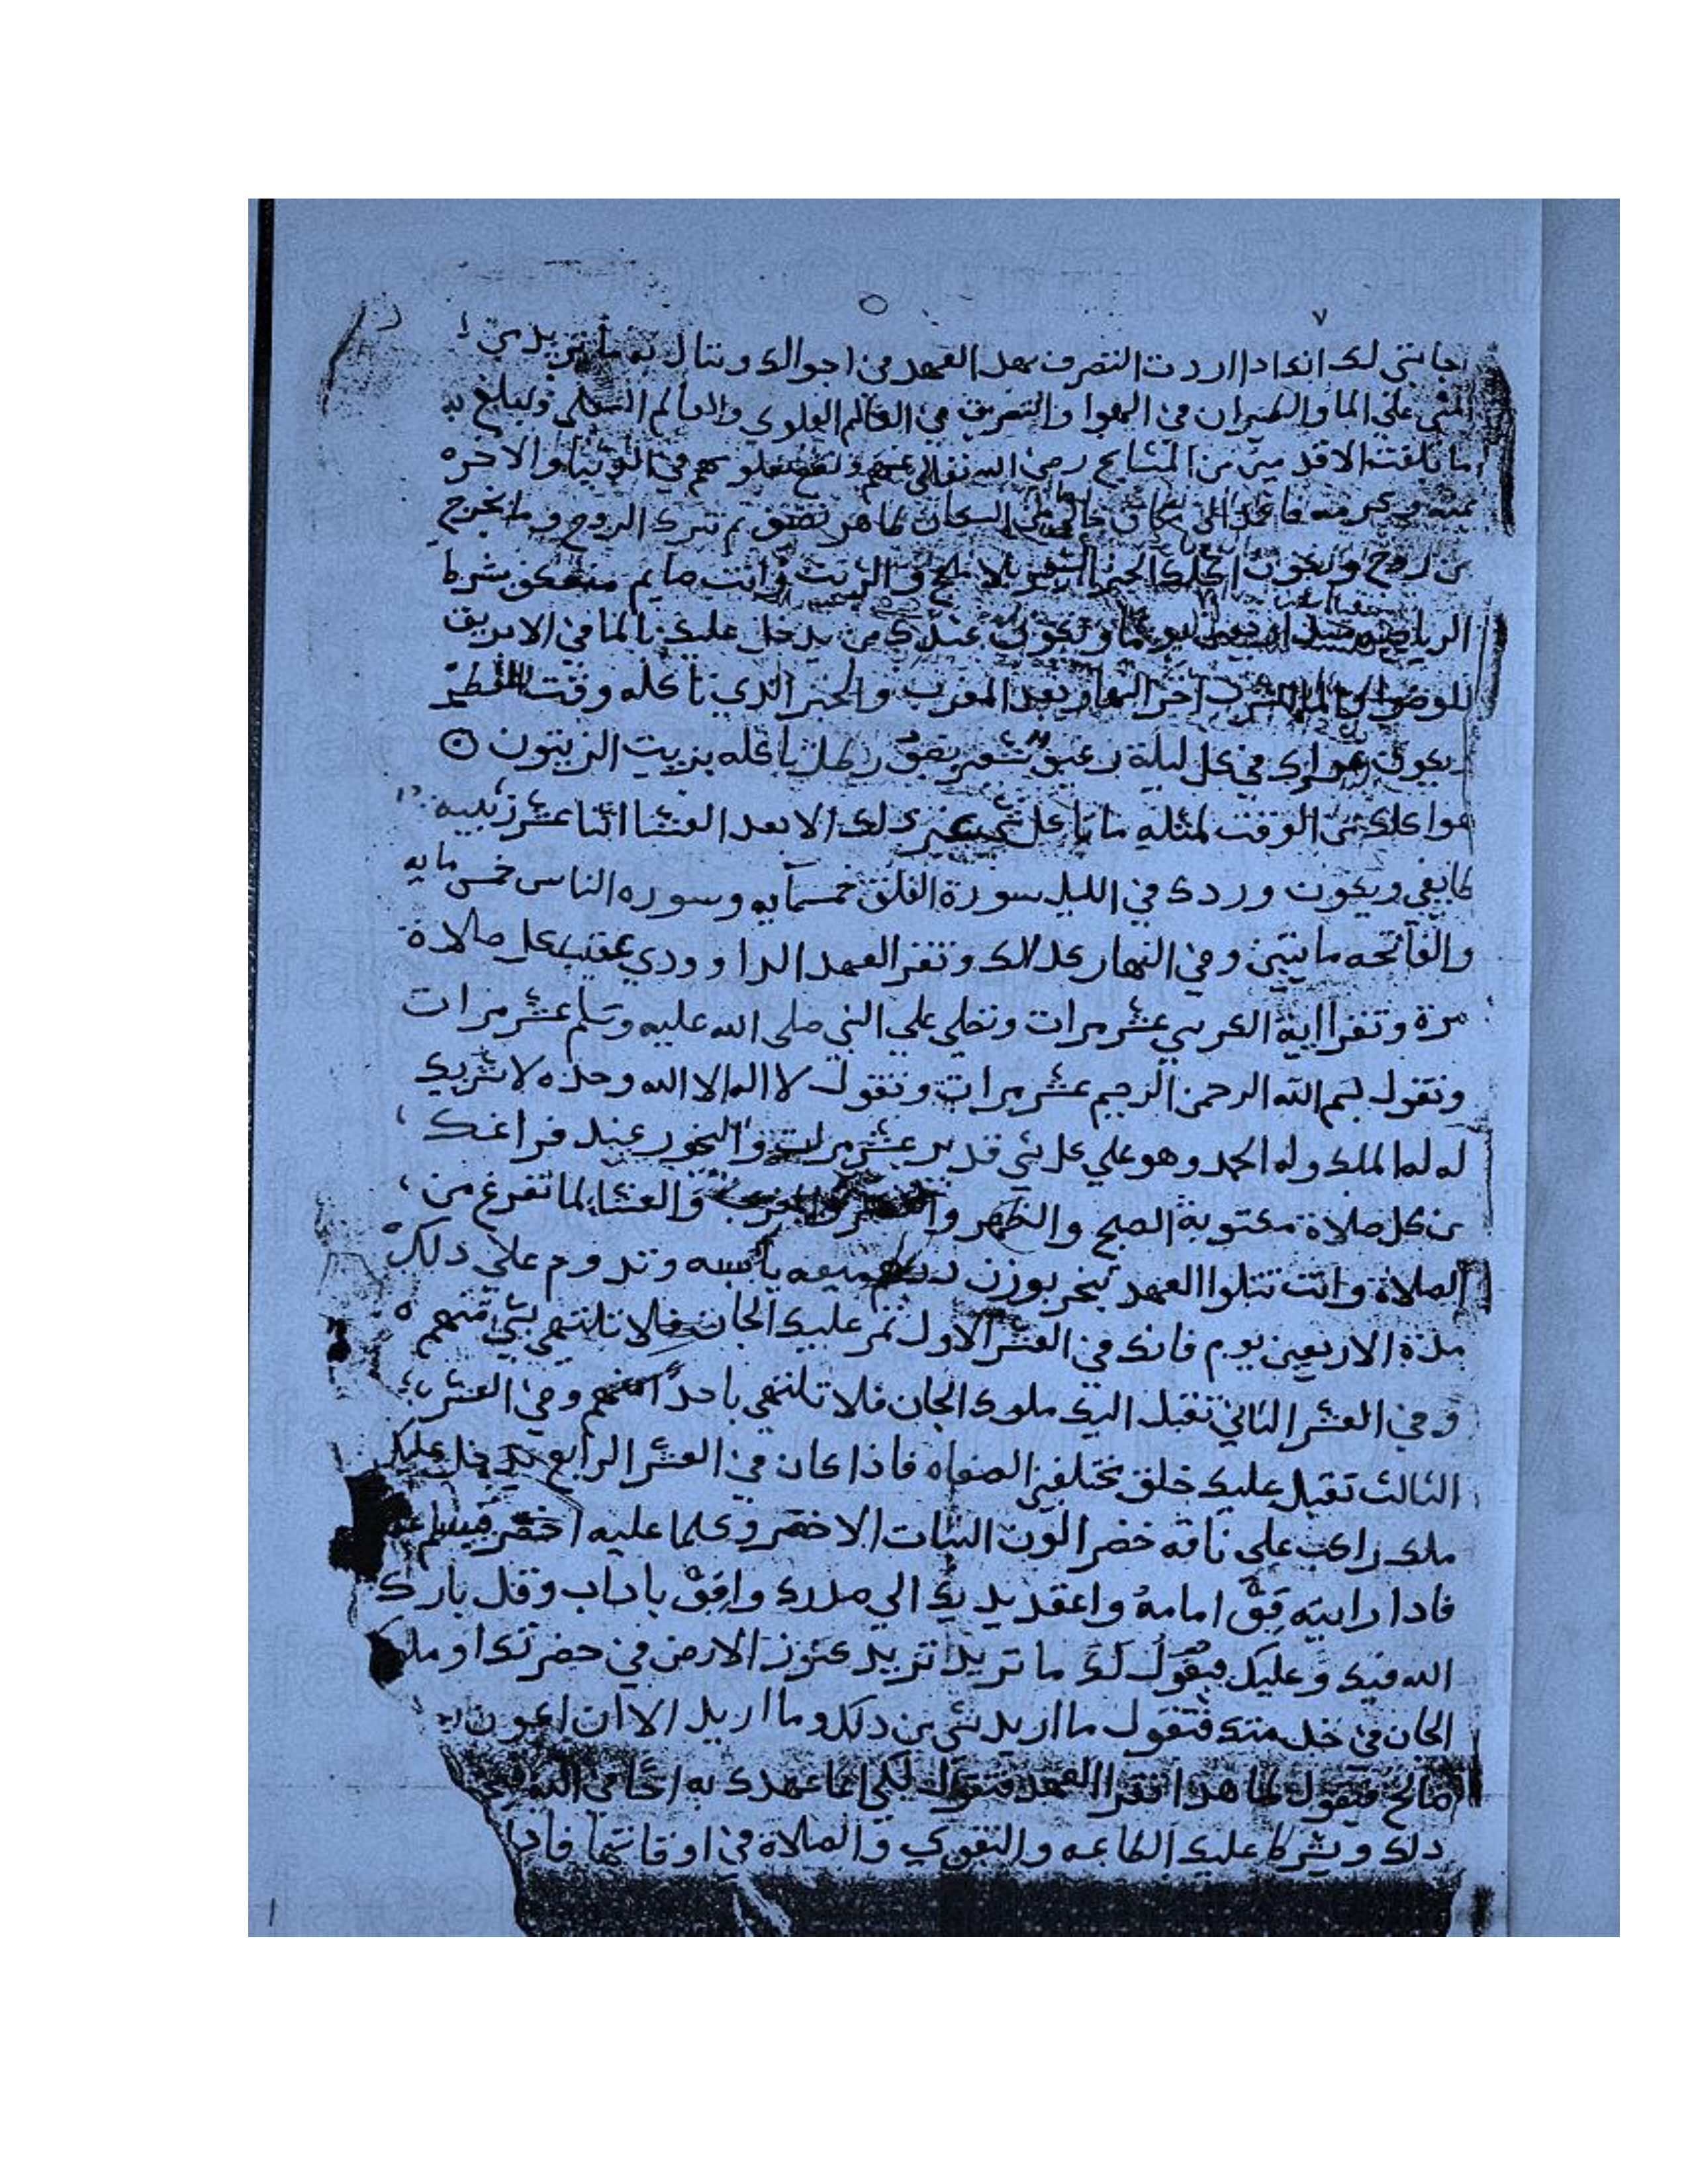 ٧
لك انك اذا اردت التصرف بهد العهد في احوالك وتنال به ما تريد من
المشي علي الما والطيران في الهوا والتصريف في العالم العلوي والعالم السفلي وتبلغ به
ما بلغت الاقد مين من المشايخ رضي الله تعالي عنهم ونفع بعلومهم في الدنيا والاخره
المكان طاهر نضيف تم تترك الروح وما يخرج
من روح ويكون اكلك الخبز الشعير بلا ملح والزيت وانت صايم معتكف شرط
الرياضه اربعين يوما وتكون عندك من يدخل عليك بالما في الابريق
للوضو اخر النهار بعد المغرب والخبز الذي تاكله وقت الفطر
يكون في كل ليلة رغيف شعير رطل تاكله بزيت الزيتون
الوقت لمثله ما تاكل شي غير دلك الا بعد العشا اثنا عشر زبيبه
طايفي ويكون وردك في الليل سورة الفلق خمسمايه وسوره الناس خمس مايه
والفاتحه مايتين وفي النهار كدلك وتقرا العهد الداوودي عقب كل صلاة
مرة وتقرا اية الكرسي عشر مرات وتصلي علي النبي صلي الله عليه وسلم عشر مرات
وتقول بسم الله الرحمن الرحيم عشر مرات وتقول لا اله الا الله وحده لا شريك
له له الملك وله الحمد وهو علي كل شي قدير عشر مرات والبخور عند فراغك
من كل صلاة مكتوبة الصبح والظهر والعصر والمغرب والعشا لما تفرغ من
الصلاة وانت تتلوا العهد تبخر بوزن درهم ميعه يابسه وتدوم علي دلك
مدة الاربعين يوم فانك في العشر الاول تمر عليك الجان فلا تلتهي بشي منهم
وفي العشر الثاني تقبل اليك ملوك الجان فلا تلتهي باحدا منهم وفي العشر
الثالث تقبل عليك خلق مختلفين الصفاه فاذا كان في العشر الرابع يدخل عليك
ملك راكب علي ناقه خضر الون النبات الاخضر وكلما عليه اخضر فيسلم
فادا رايته قف امامه واعقد يديك الي صدرك واقف باداب وقل بارك
الله فيك وعليك فيقول لك ما تريد اتريد كنوز الارض في حضرتك او ملوك
الجان في خدمتك فتقول ما اريد شي من دلك وما اريد الا ان اكون
صالح فيقول لها هدا تقرا العهد فتقول
دلك ويشرط عليك الطاعه والتقوي والصلاة في اوقاتها فادا